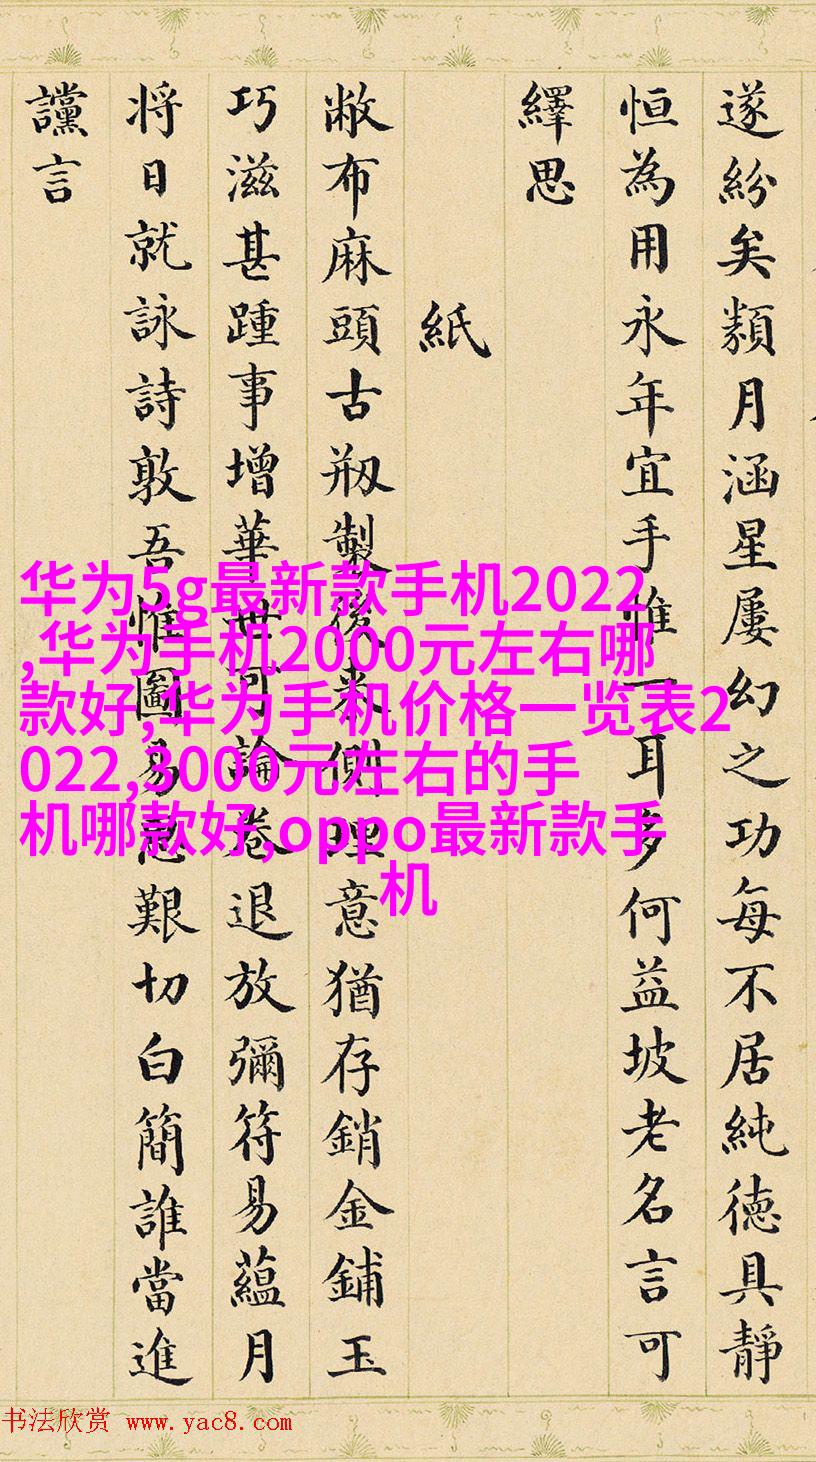 遂紛矣類月涵星屢幻之功每不居純德具靜
恒為用永年宜手惟一耳多何益坡老名言可
繹思
紙
敝布麻頭古剏製後来側理意猶存銷金鋪玉
巧滋甚踵事增華世可論卷退放彌符易蘊月
将日就詠詩敦吾惟圖易慮艱切白簡誰當進
讜言
华为5g最新款手机2022
,华为手机2000元左右哪
款好,华为手机价格一览表2
022,3000元左右的手
机哪款好,oppo最新款手
机
书法欣赏 www.yac8.com